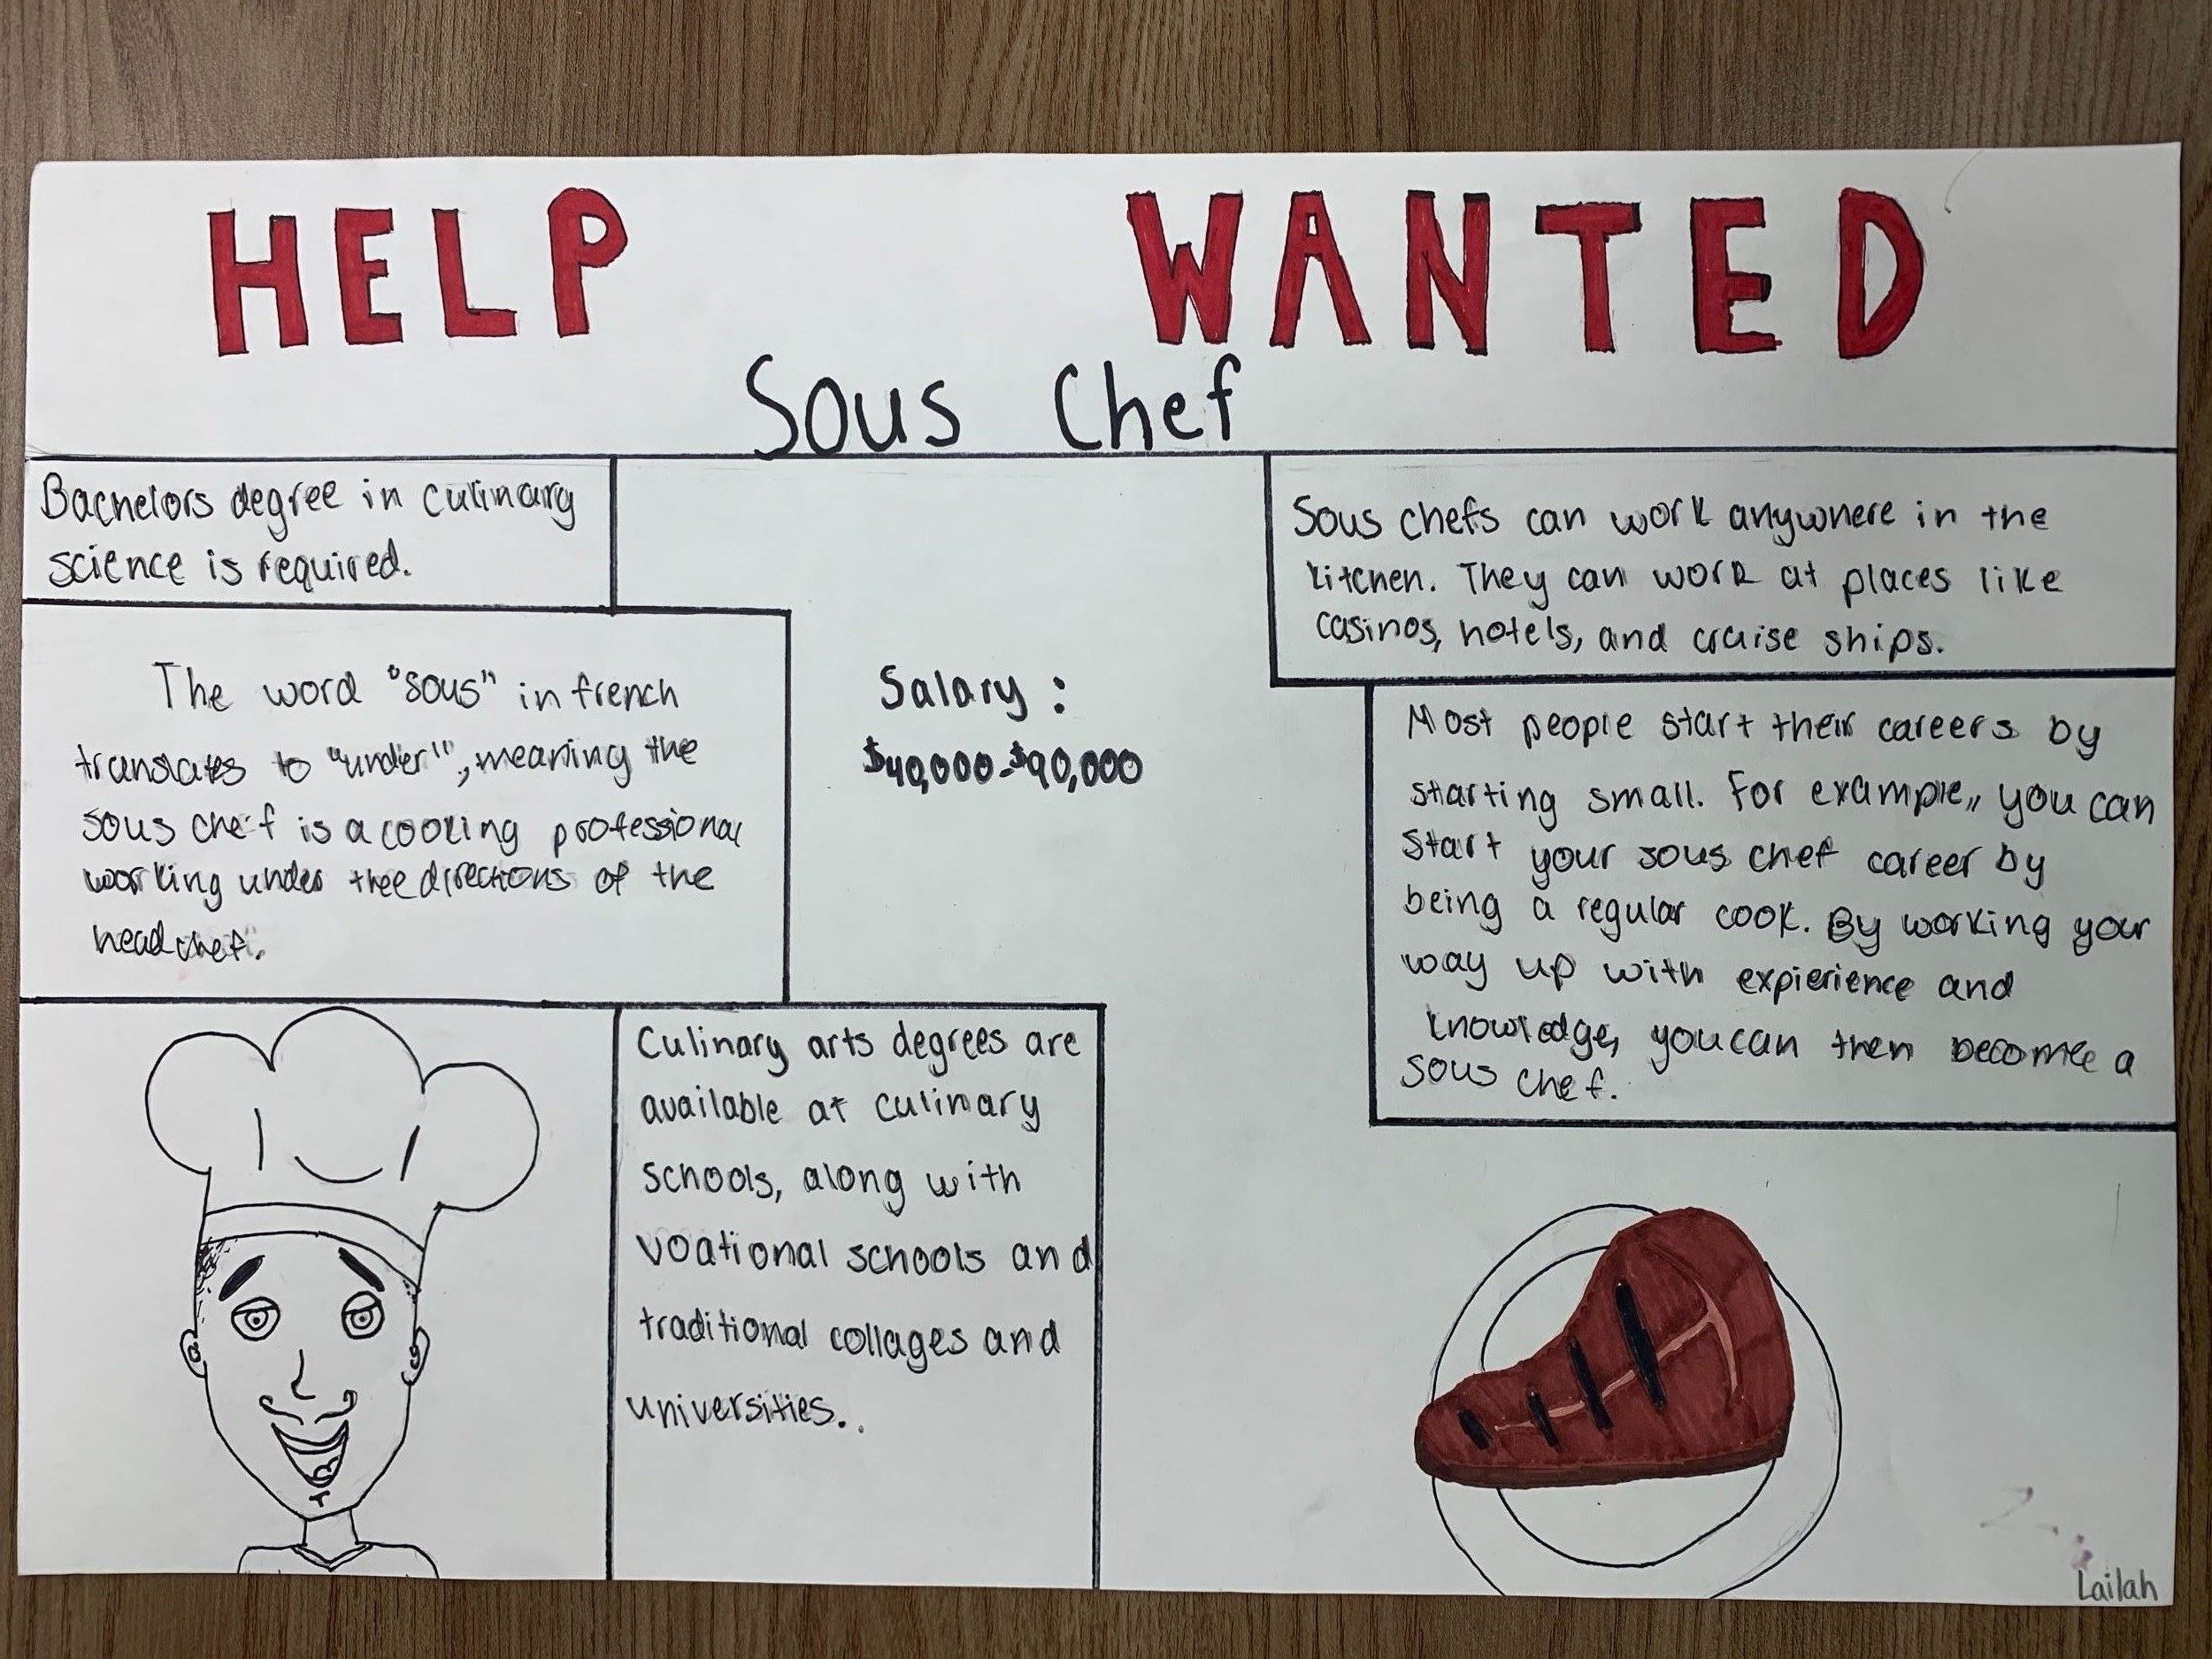 HELP WANTED
Sous Chef
Bachelors degree in culinary
science is required.
The word "sous" in french
translates to "under", meaning the
sous chef is a cooking professional
working under thee directions of the
head chef.
Salary:
$40,000-$90,000
Sous chefs can work anywhere in the
kitchen. They can work at places like
casinos, hotels, and cruise ships.
Most people start their careers by
starting small. For example,, you can
start your sous chef career by
being a regular cook. By working your
way up with expierience and
knowledge, you can then become a
sous chef.
Culinary arts degrees are
available at culinary
schools, along with
voational schools and
traditional collages and
universities..
Lailah